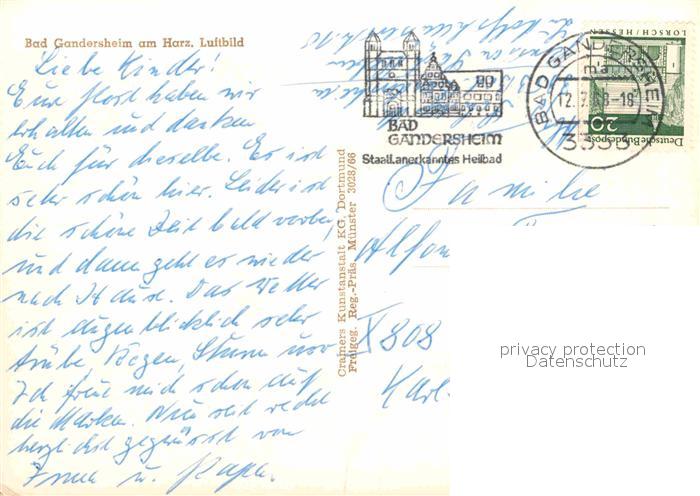 Bad Gandersheim am Harz, Luftbild
Liebe Kinder!
Eure Post haben wir
erhalten und danken
Euch für dieselbe. Es ist
sehr schön hier. Leider ist
die schöne Zeit bald vorbei,
und dann geht es wieder
nach Hause. Das Wetter
ist augenblicklich sehr
trübe, Regen, Sturm usw
Ich freue mich schon auf
die Marken. Nun seid recht
herzlichst gegrüsst von
u. Papa.
Cramers Kunstanstalt KG, Dortmund
Freigeg. Reg.-Präs. Münster 3028/66
BAD
GANDERSHEIM
Staatl. anerkanntes Heilbad
BAD GANDERSHEIM
3353
LORSCH/HESSEN
Deutsche Bundespost
20
Familie
X808
Karl-
privacy protection
Datenschutz